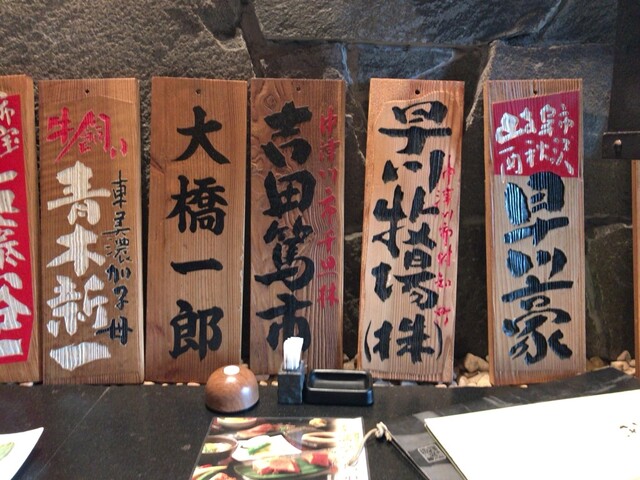 牛飼い
青木新一
東美濃加子母
大橋一郎
吉田篤市
中津川市千旦林
早川牧場(株)
中津川市付知町
早川豪